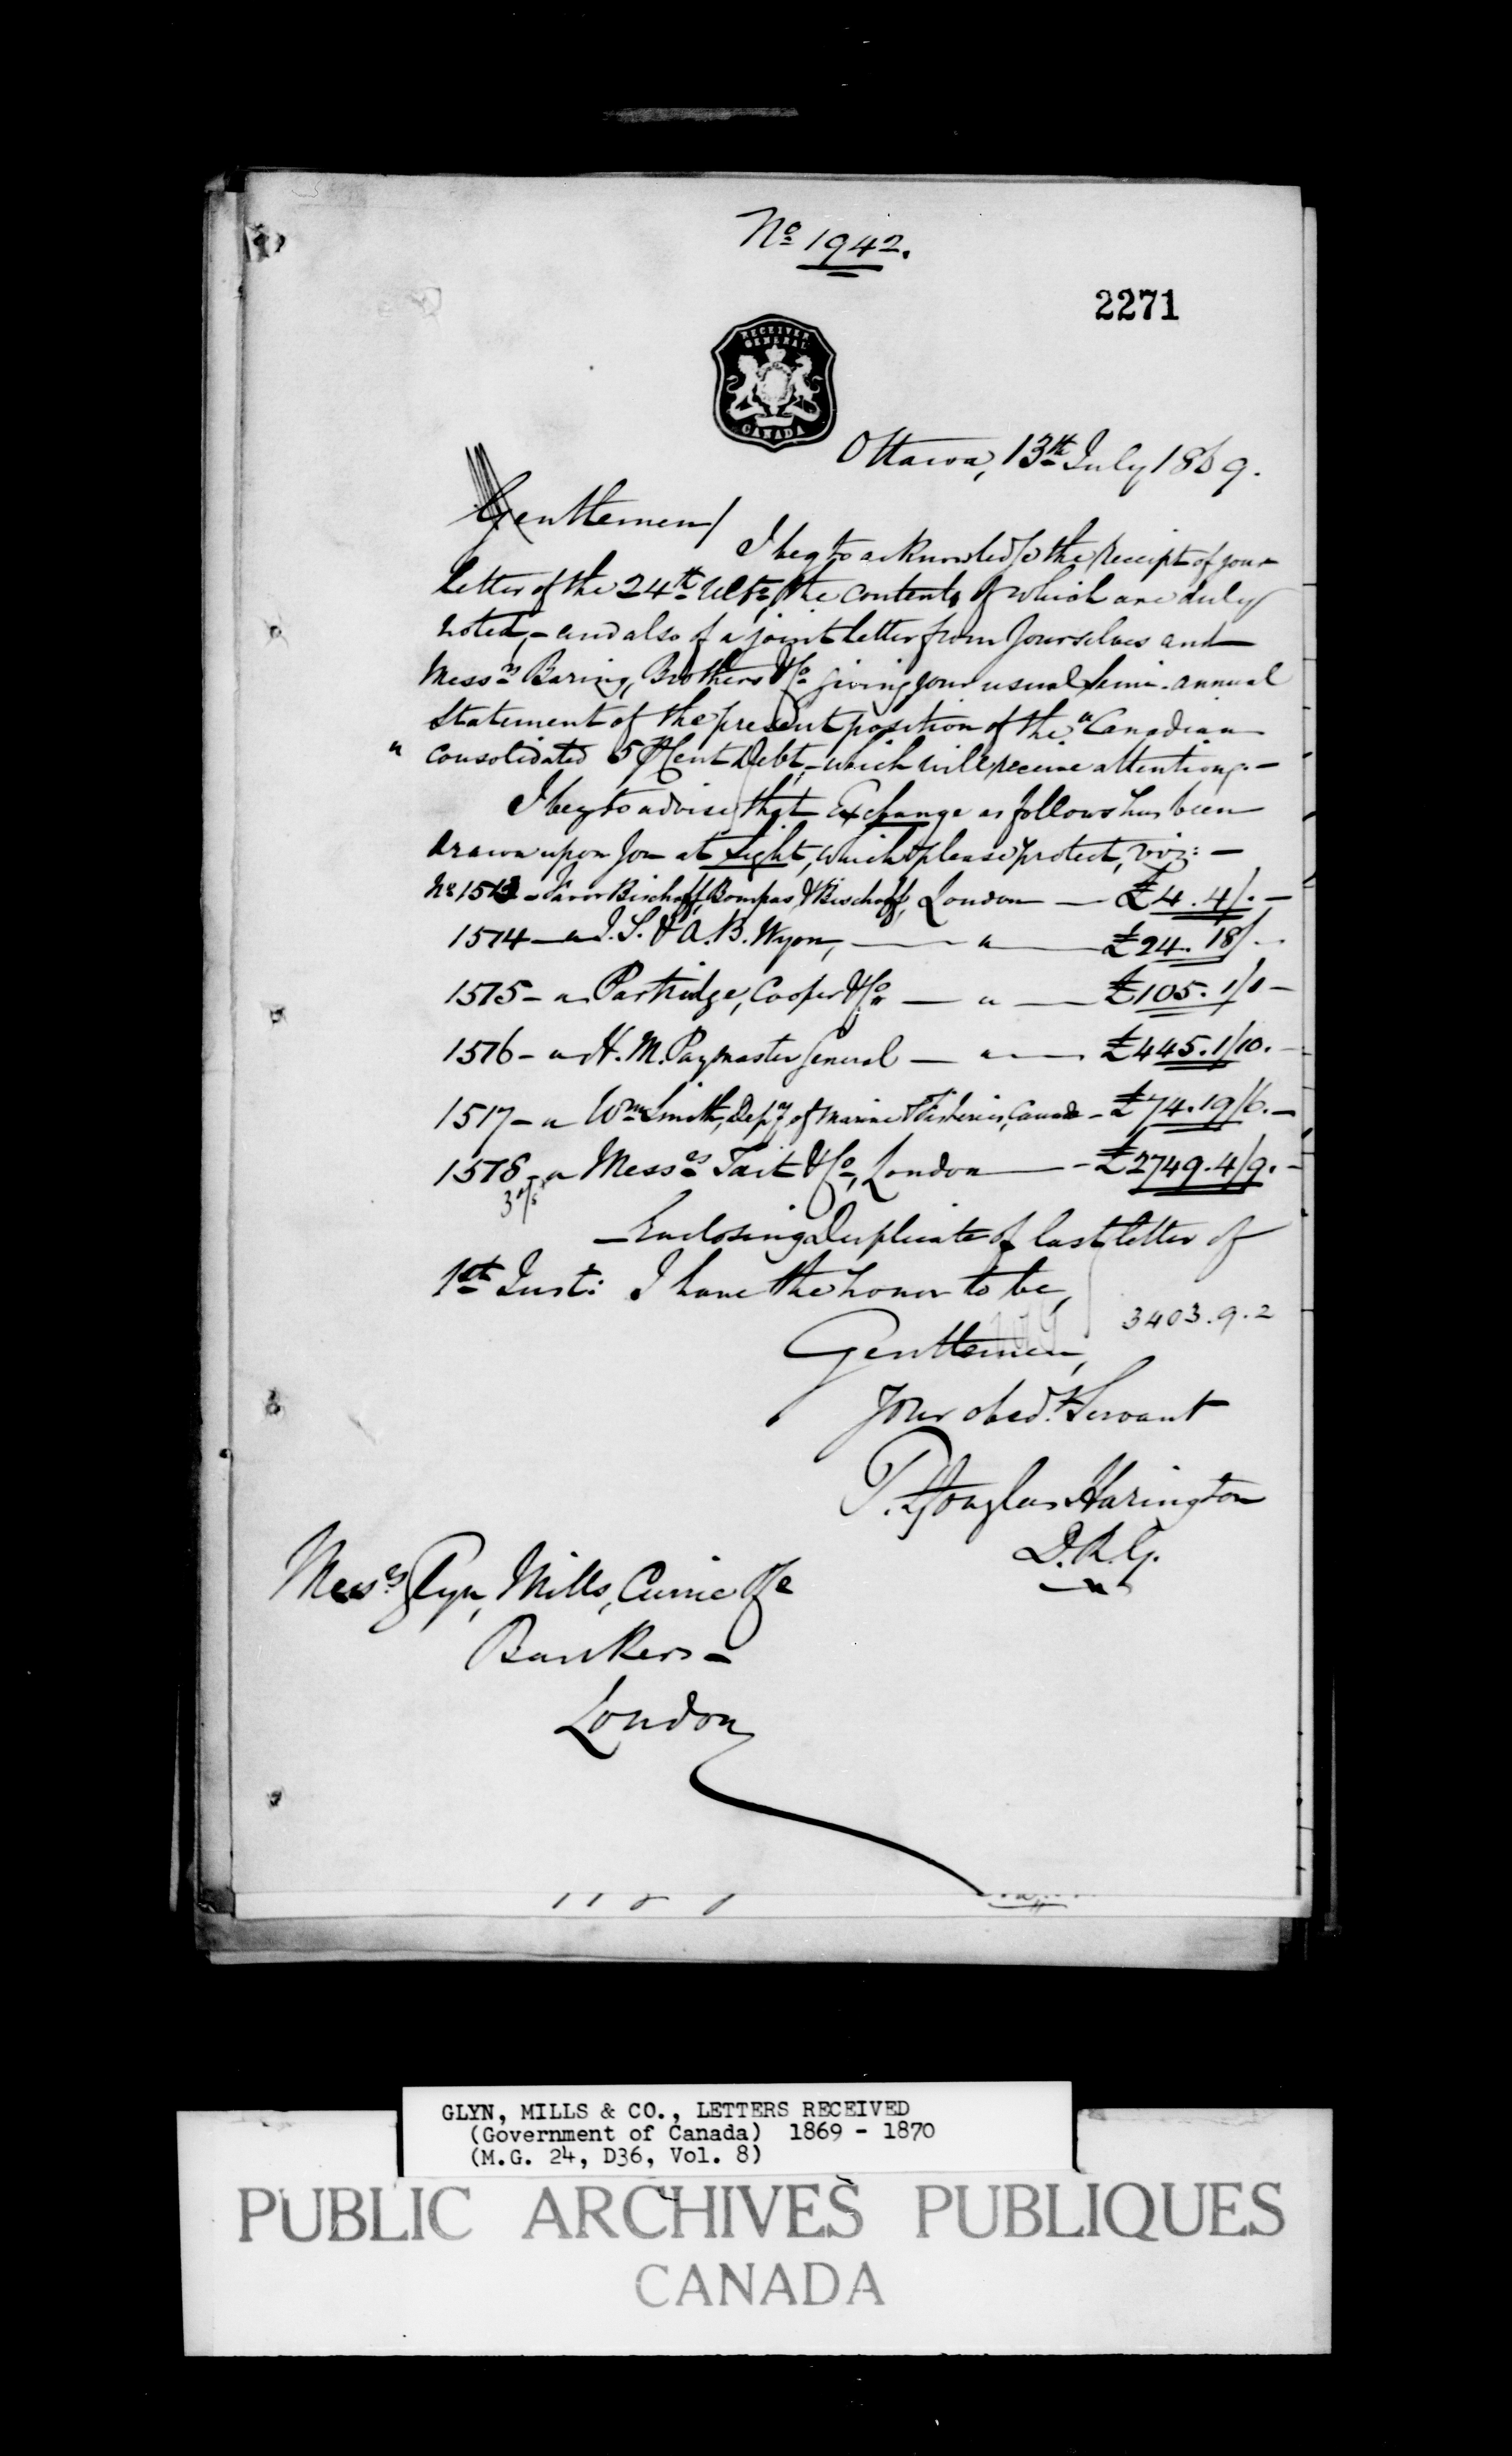 No 1942.
2271
RECEIVER
GENERAL
CANADA
Ottawa, 13th July 1869.
Gentlemen/
I beg to acknowledge the receipt of your
letter of the 24th Ulto, the contents of which are duly
noted, - and also of a joint letter from yourselves and
Messrs Baring, Brothers & Co giving your usual Semi-annual
statement of the present position of the "Canadian
" Consolidated 5 P Cent Debt, - which will receive attention. -
I beg to advise that Exchange as follows has been
drawn upon you at sight, which please protect, viz: -
No 1513 - Favor Bischoff, Bompas & Bischoff, London — £4. 4/. -
1514 — " J. S. & A. B. Wyon, — " — £24. 18/. -
1515 - " Partridge, Cooper & Co — " — £105. 1/1 -
1516 - " H. M. Paymaster General — " — £445. 1/10. -
1517 - " Wm Smith, Dept of Marine & Fisheries, Canada - £74. 19/6. -
1518 - " Messrs Tait & Co, London — - £2749. 4/9. -
3 d/s
— Enclosing Duplicate of last letter of
1st Inst: I have the honor to be,
3403. 9. 2
Gentlemen,
Your obedt Servant
T. Douglas Harington
D. R. G.
Messrs Glyn, Mills, Currie & Co
Bankers -
London
GLYN, MILLS & CO., LETTERS RECEIVED
(Government of Canada) 1869 - 1870
(M.G. 24, D36, Vol. 8)
PUBLIC ARCHIVES PUBLIQUES
CANADA